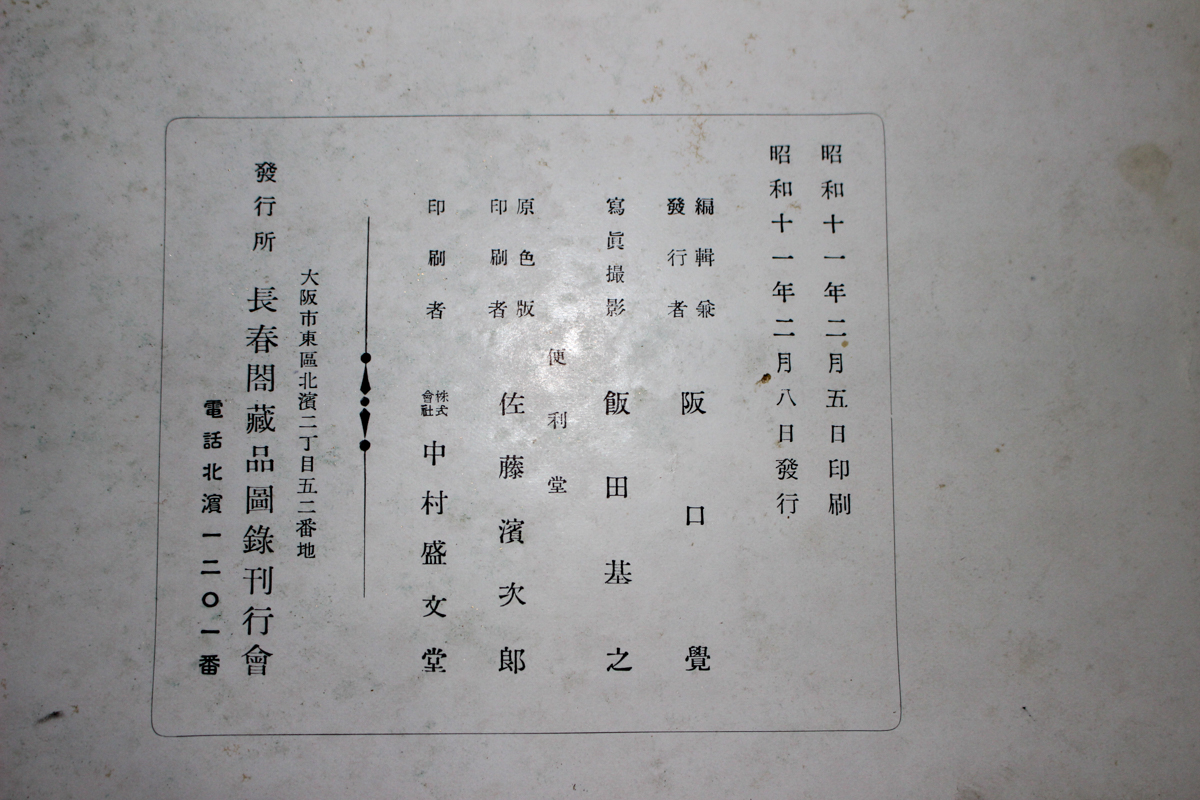 昭和十一年二月五日印刷
昭和十一年二月八日發行
編輯兼
發行者
阪口覺
寫眞撮影
飯田基之
便利堂
原色版
印刷者
佐藤濱次郎
印刷者
株式
會社
中村盛文堂
大阪市東區北濱二丁目五二番地
發行所 長春閣藏品圖錄刊行會
電話北濱一二〇一番